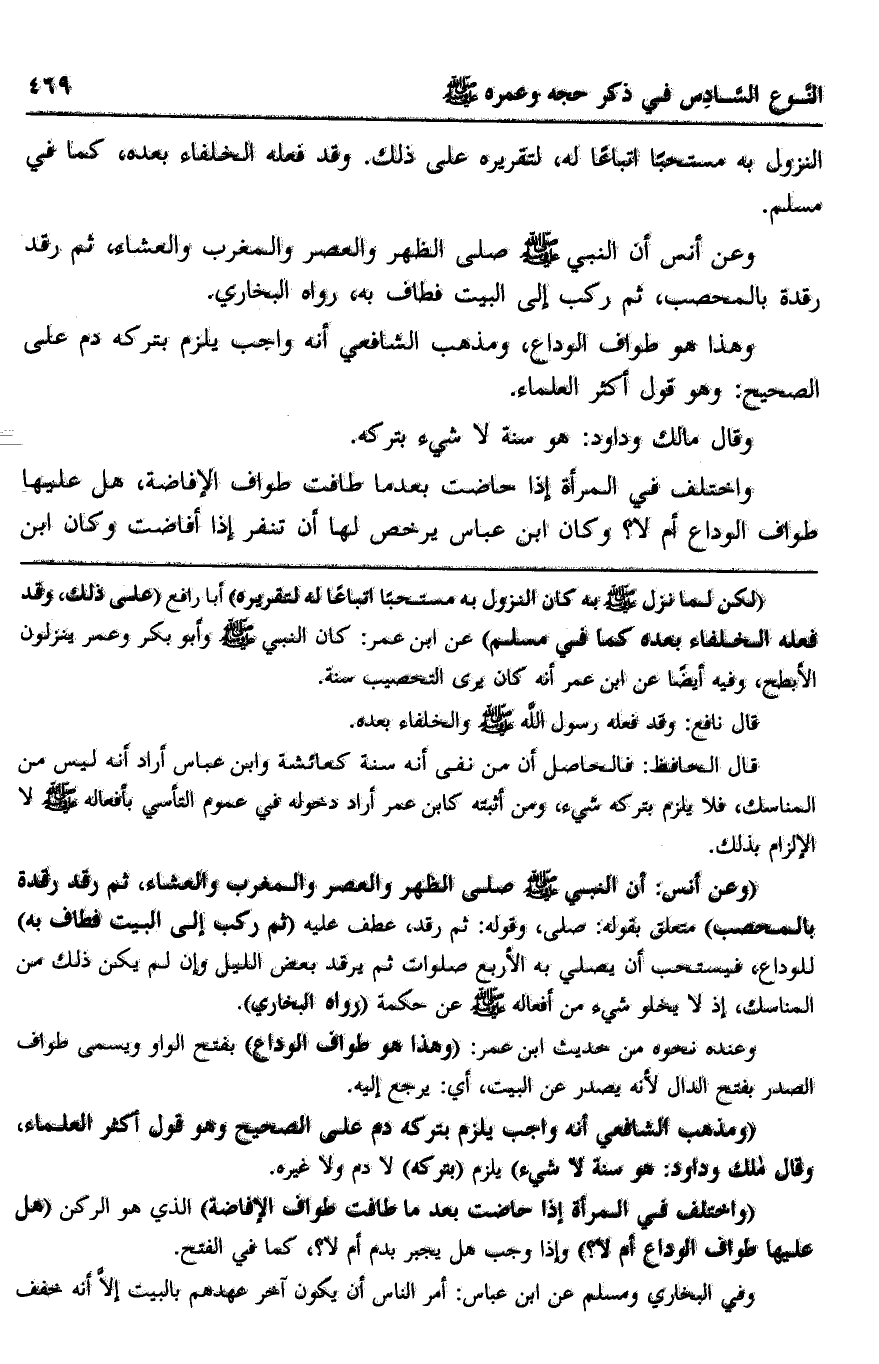 النَّوع السَّادِس في ذكر حجه وعمره ﷺ ٤٦٩
النزول به مستحبًا اتباعًا له، لتقريره على ذلك. وقد فعله الخلفاء بعده، كما في
مسلم.
وعن أنس أن النبي ﷺ صلى الظهر والعصر والمغرب والعشاء، ثم رقد
رقدة بالمحصب، ثم ركب إلى البيت فطاف به، رواه البخاري.
وهذا هو طواف الوداع، ومذهب الشافعي أنه واجب يلزم بتركه دم على
الصحيح: وهو قول أكثر العلماء.
وقال مالك وداود: هو سنة لا شيء بتركه.
واختلف في المرأة إذا حاضت بعدما طافت طواف الإفاضة، هل عليها
طواف الوداع أم لا؟ وكان ابن عباس يرخص لها أن تنفر إذا أفاضت وكان ابن
(لكن لما نزل ﷺ به كان النزول به مستحبًا اتباعًا له لتقريره) أبا رافع (على ذلك، وقد
فعله الخلفاء بعده كما في مسلم) عن ابن عمر: كان النبي ﷺ وأبو بكر وعمر ينزلون
الأبطح، وفيه أيضًا عن ابن عمر أنه كان يرى التحصيب سنة.
قال نافع: وقد فعله رسول اللَّه ﷺ والخلفاء بعده.
قال الحافظ: فالحاصل أن من نفى أنه سنة كعائشة وابن عباس أراد أنه ليس من
المناسك، فلا يلزم بتركه شيء، ومن أثبته كابن عمر أراد دخوله في عموم التأسي بأفعاله ﷺ لا
الإلزام بذلك.
(وعن أنس: أن النبي ﷺ صلى الظهر والعصر والمغرب والعشاء، ثم رقد رقدة
بالمحصب) متعلق بقوله: صلى، وقوله: ثم رقد، عطف عليه (ثم ركب إلى البيت فطاف به)
للوداع، فيستحب أن يصلي به الأربع صلوات ثم يرقد بعض الليل وإن لم يكن ذلك من
المناسك، إذ لا يخلو شيء من أفعاله ﷺ عن حكمة (رواه البخاري).
وعنده نحوه من حديث ابن عمر: (وهذا هو طواف الوداع) بفتح الواو ويسمى طواف
الصدر بفتح الدال لأنه يصدر عن البيت، أي: يرجع إليه.
(ومذهب الشافعي أنه واجب يلزم بتركه دم على الصحيح وهو قول أكثر العلماء،
وقال مٰلك وداود: هو سنة لا شيء) يلزم (بتركه) لا دم ولا غيره.
(واختلف في المرأة إذا حاضت بعد ما طافت طواف الإفاضة) الذي هو الركن (هل
عليها طواف الوداع أم لا؟) وإذا وجب هل يجبر بدم أم لا؟، كما في الفتح.
وفي البخاري ومسلم عن ابن عباس: أمر الناس أن يكون آخر عهدهم بالبيت إلاَّ أنه خفف